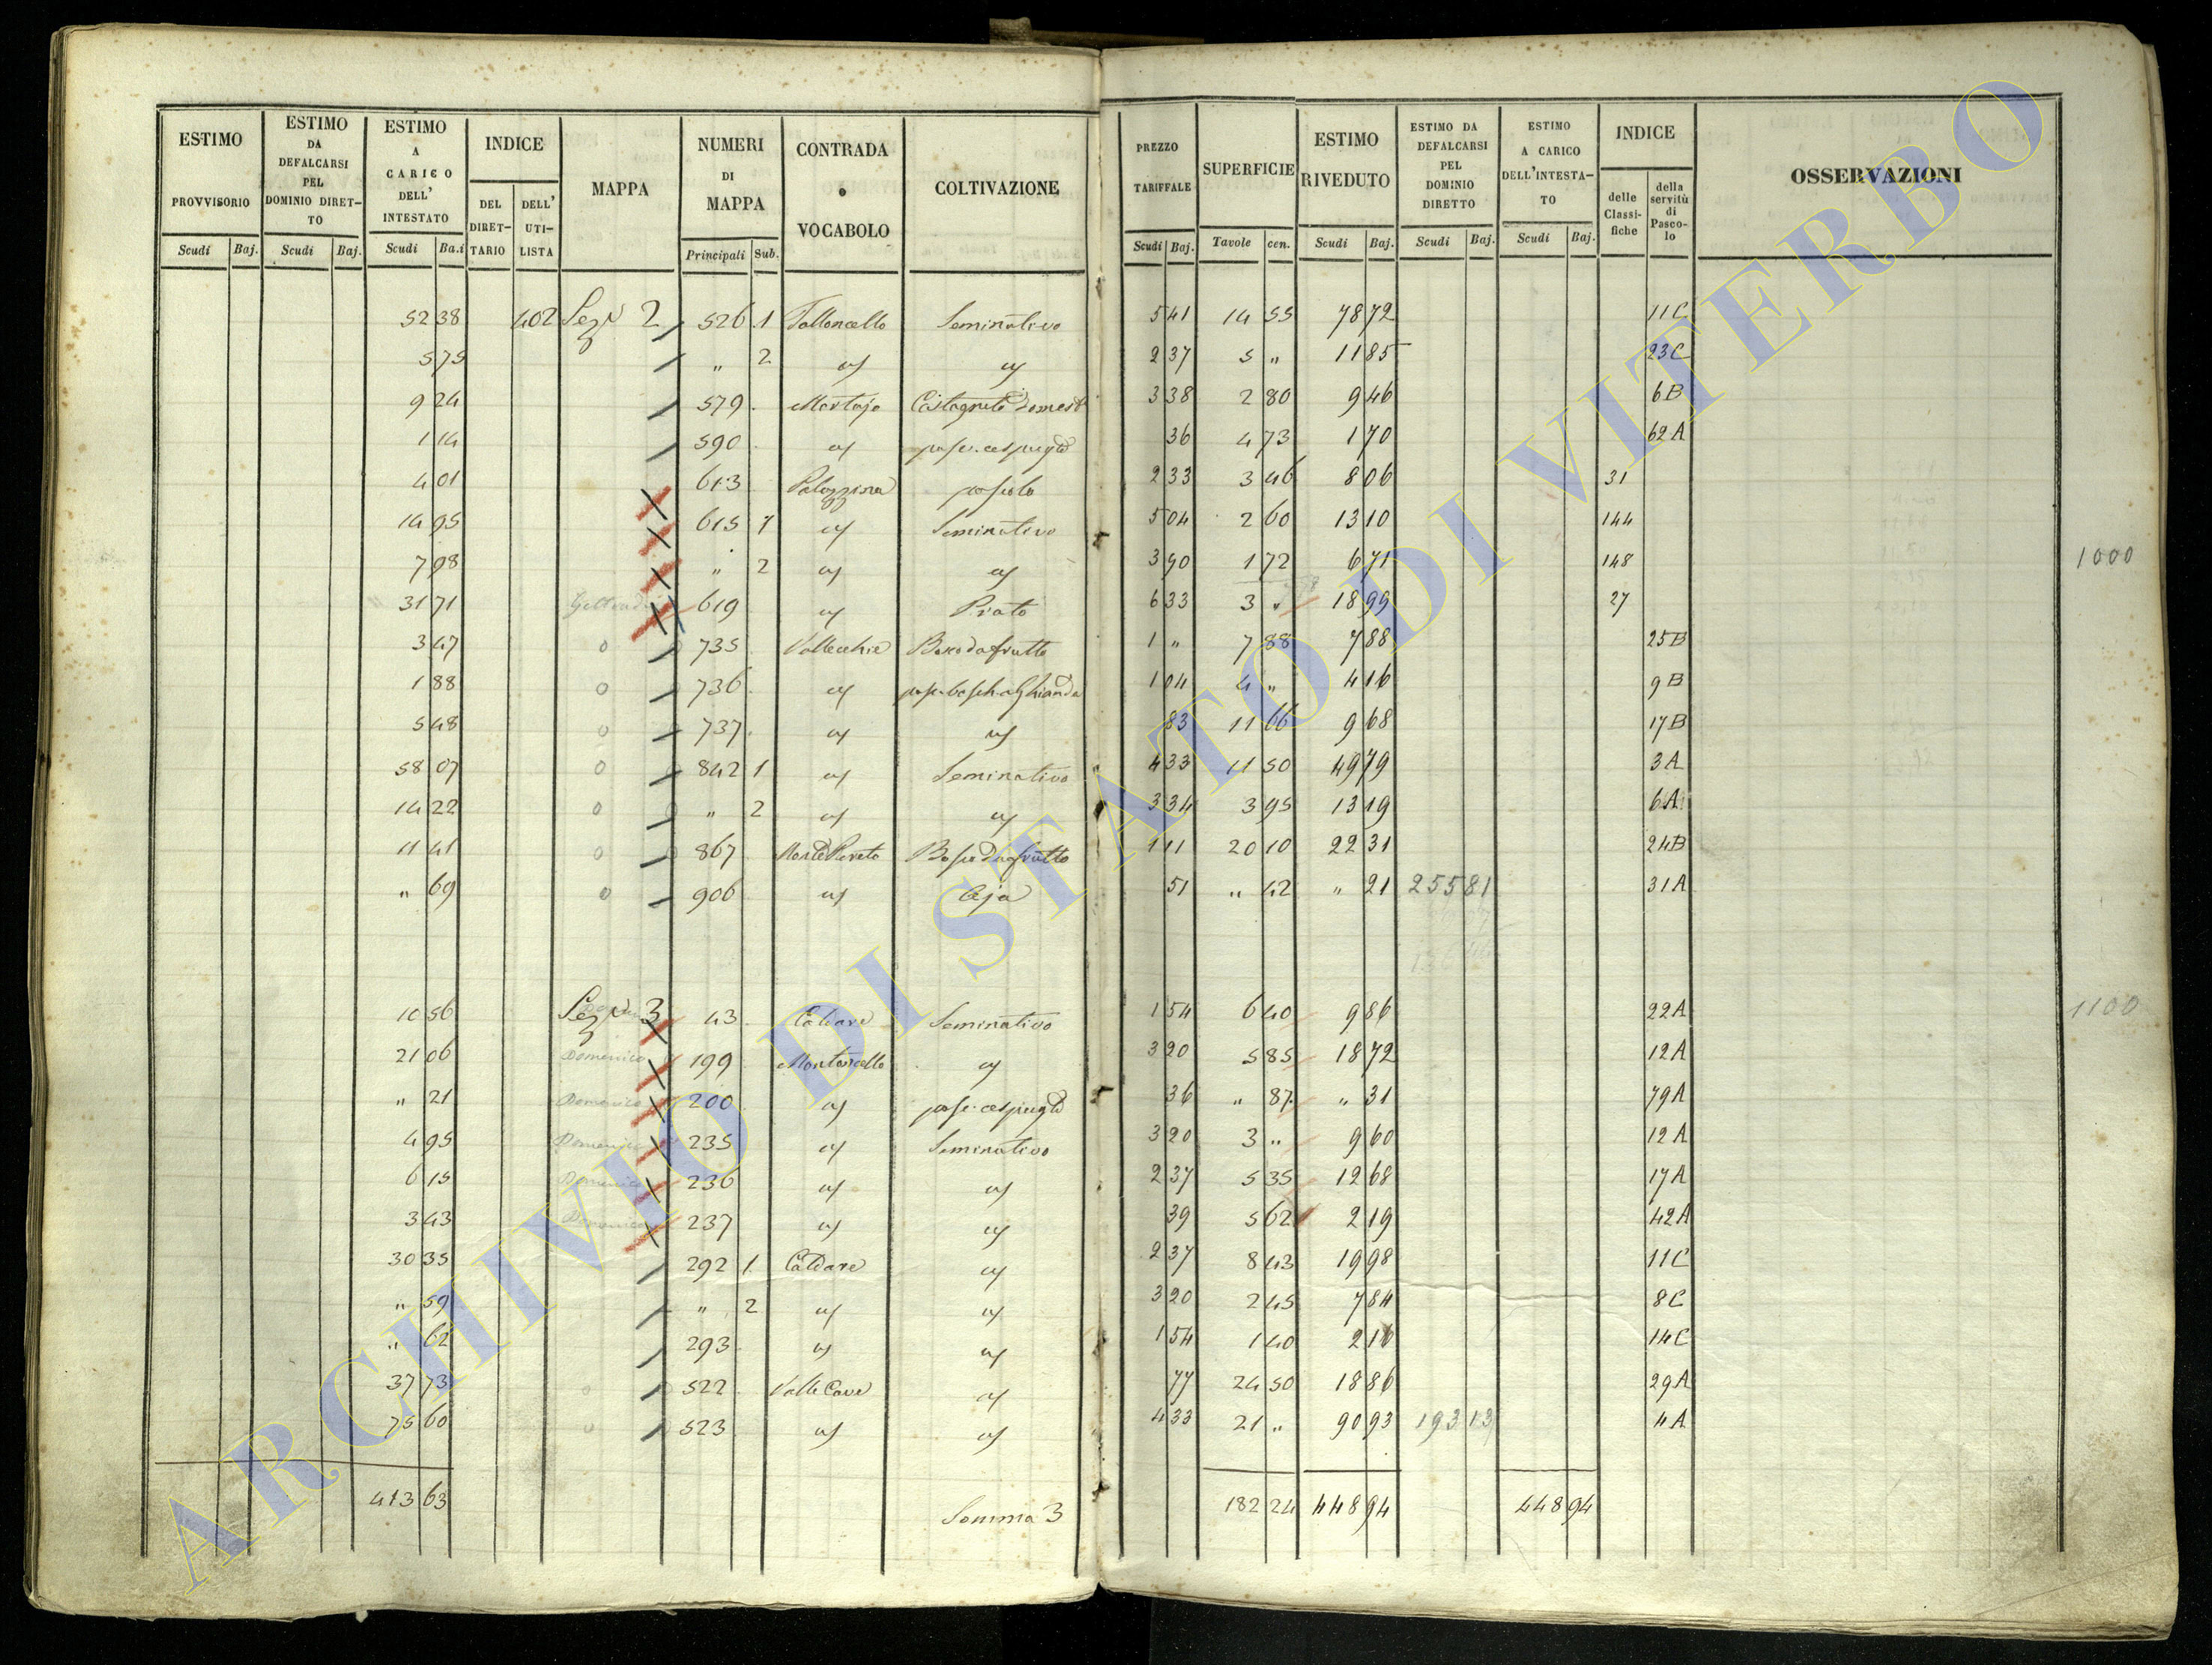 ESTIMO PROVVISORIO | ESTIMO DA DEFALCARSI PEL DOMINIO DIRET-TO | ESTIMO A CARICO DELL' INTESTATO | INDICE DEL DIRET-TARIO | DELL' UTI-LISTA | MAPPA | NUMERI DI MAPPA | CONTRADA o VOCABOLO | COLTIVAZIONE | PREZZO TARIFFALE | SUPERFICIE | ESTIMO RIVEDUTO | ESTIMO DA DEFALCARSI PEL DOMINIO DIRETTO | ESTIMO A CARICO DELL'INTESTA-TO | INDICE delle Classi-fiche | della servitù di Pasco-lo | OSSERVAZIONI
Scudi | Baj. | Scudi | Baj. | Scudi | Ba.i | Principali | Sub. | Scudi | Baj. | Tavole | cen. | Scudi | Baj. | Scudi | Baj. | Scudi | Baj.
52 38 | 402 | Sez 2 | 526 1 | | Seminativo | 5 41 | 14 55 | 78 72 | 11C
5 75 | " 2 | | | 2 37 | 5 " | 11 85 | 23C
9 24 | 579 | | Castagneto domest | 3 38 | 2 80 | 9 46 | 6B
1 14 | 590 | | pasc. cespugto | 36 | 4 73 | 1 70 | 62A
4 01 | 613 | Palazzina | pascolo | 2 33 | 3 46 | 8 06 | 31
14 95 | 615 1 | | Seminativo | 5 04 | 2 60 | 13 10 | 144
7 98 | " 2 | | | 3 90 | 1 72 | 6 71 | 148 | 1000
31 71 | 619 | | Prato | 6 33 | 3 " | 18 99 | 27
3 47 | o | 735 | Vallecchie | Bosco da frutto | 1 " | 7 88 | 7 88 | 25B
1 88 | o | 736 | | pasc. bosch. a Ghianda | 1 04 | 4 " | 4 16 | 9B
5 48 | o | 737 | | | 83 | 11 66 | 9 68 | 17B
58 07 | o | 842 1 | | Seminativo | 4 33 | 11 50 | 49 79 | 3A
14 22 | o | " 2 | | | 3 34 | 3 95 | 13 19 | 6A
11 41 | o | 867 | | Bosco da frutto | 1 11 | 20 10 | 22 31 | 24B
" 69 | o | 906 | | Aja | 51 | " 42 | " 21 | 255 81 | 31A
10 56 | Sez 3 | 43 | | Seminativo | 1 54 | 6 40 | 9 86 | 22A | 1100
21 06 | Domenico | 199 | Montarcello | | 3 20 | 5 85 | 18 72 | 12A
" 21 | Domenico | 200 | | pasc. cespugto | 36 | " 87 | " 31 | 79A
4 95 | Domenico | 235 | | Seminativo | 3 20 | 3 " | 9 60 | 12A
6 15 | Domenico | 236 | | | 2 37 | 5 35 | 12 68 | 17A
3 43 | Domenico | 237 | | | 39 | 5 62 | 2 19 | 42A
30 35 | 292 1 | | | 2 37 | 8 43 | 19 98 | 11C
" 59 | " 2 | | | 3 20 | 2 45 | 7 84 | 8C
" 62 | 293 | | | 1 54 | 1 40 | 2 16 | 14C
37 73 | o | 522 | Valle Cave | | 77 | 24 50 | 18 86 | 29A
75 60 | o | 523 | | | 4 33 | 21 " | 90 93 | 193 13 | 4A
413 63 | Somma 3 | 182 24 | 448 94 | 448 94
ARCHIVIO DI STATO DI VITERBO